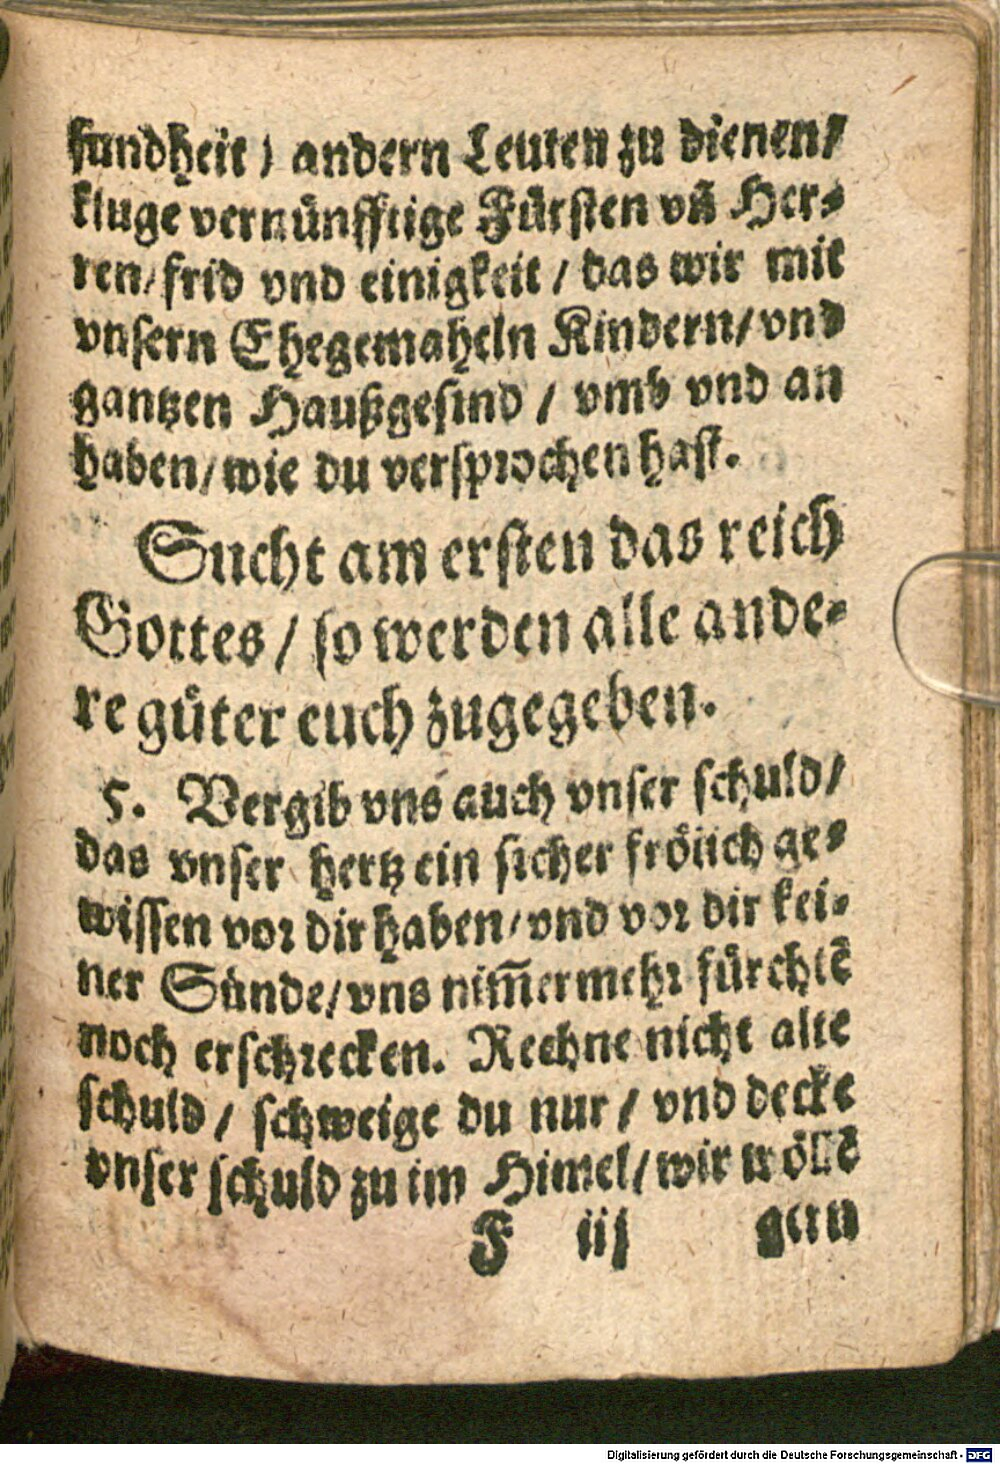 sundheit / andern Leuten zu dienen /
kluge vernünfftige Fürsten vñ Her⸗
ren / frid vnd einigkeit / das wir mit
vnsern Ehegemaheln Kindern / vnd
gantzen Haußgesind / vmb vnd an
haben / wie du versprochen hast.
Sucht am ersten das reich
Gottes / so werden alle ande⸗
re güter euch zugegeben.
5. Vergib vns auch vnser schuld /
das vnser hertz ein sicher frölich ge⸗
wissen vor dir haben / vnd vor dir kei⸗
ner Sünde / vns nim̃ermehr fürchtẽ
noch erschrecken. Rechne nicht alte
schuld / schweige du nur / vnd decke
vnser schuld zu im Himel / wir wöllẽ
F iij gern
Digitalisierung gefördert durch die Deutsche Forschungsgemeinschaft - DFG